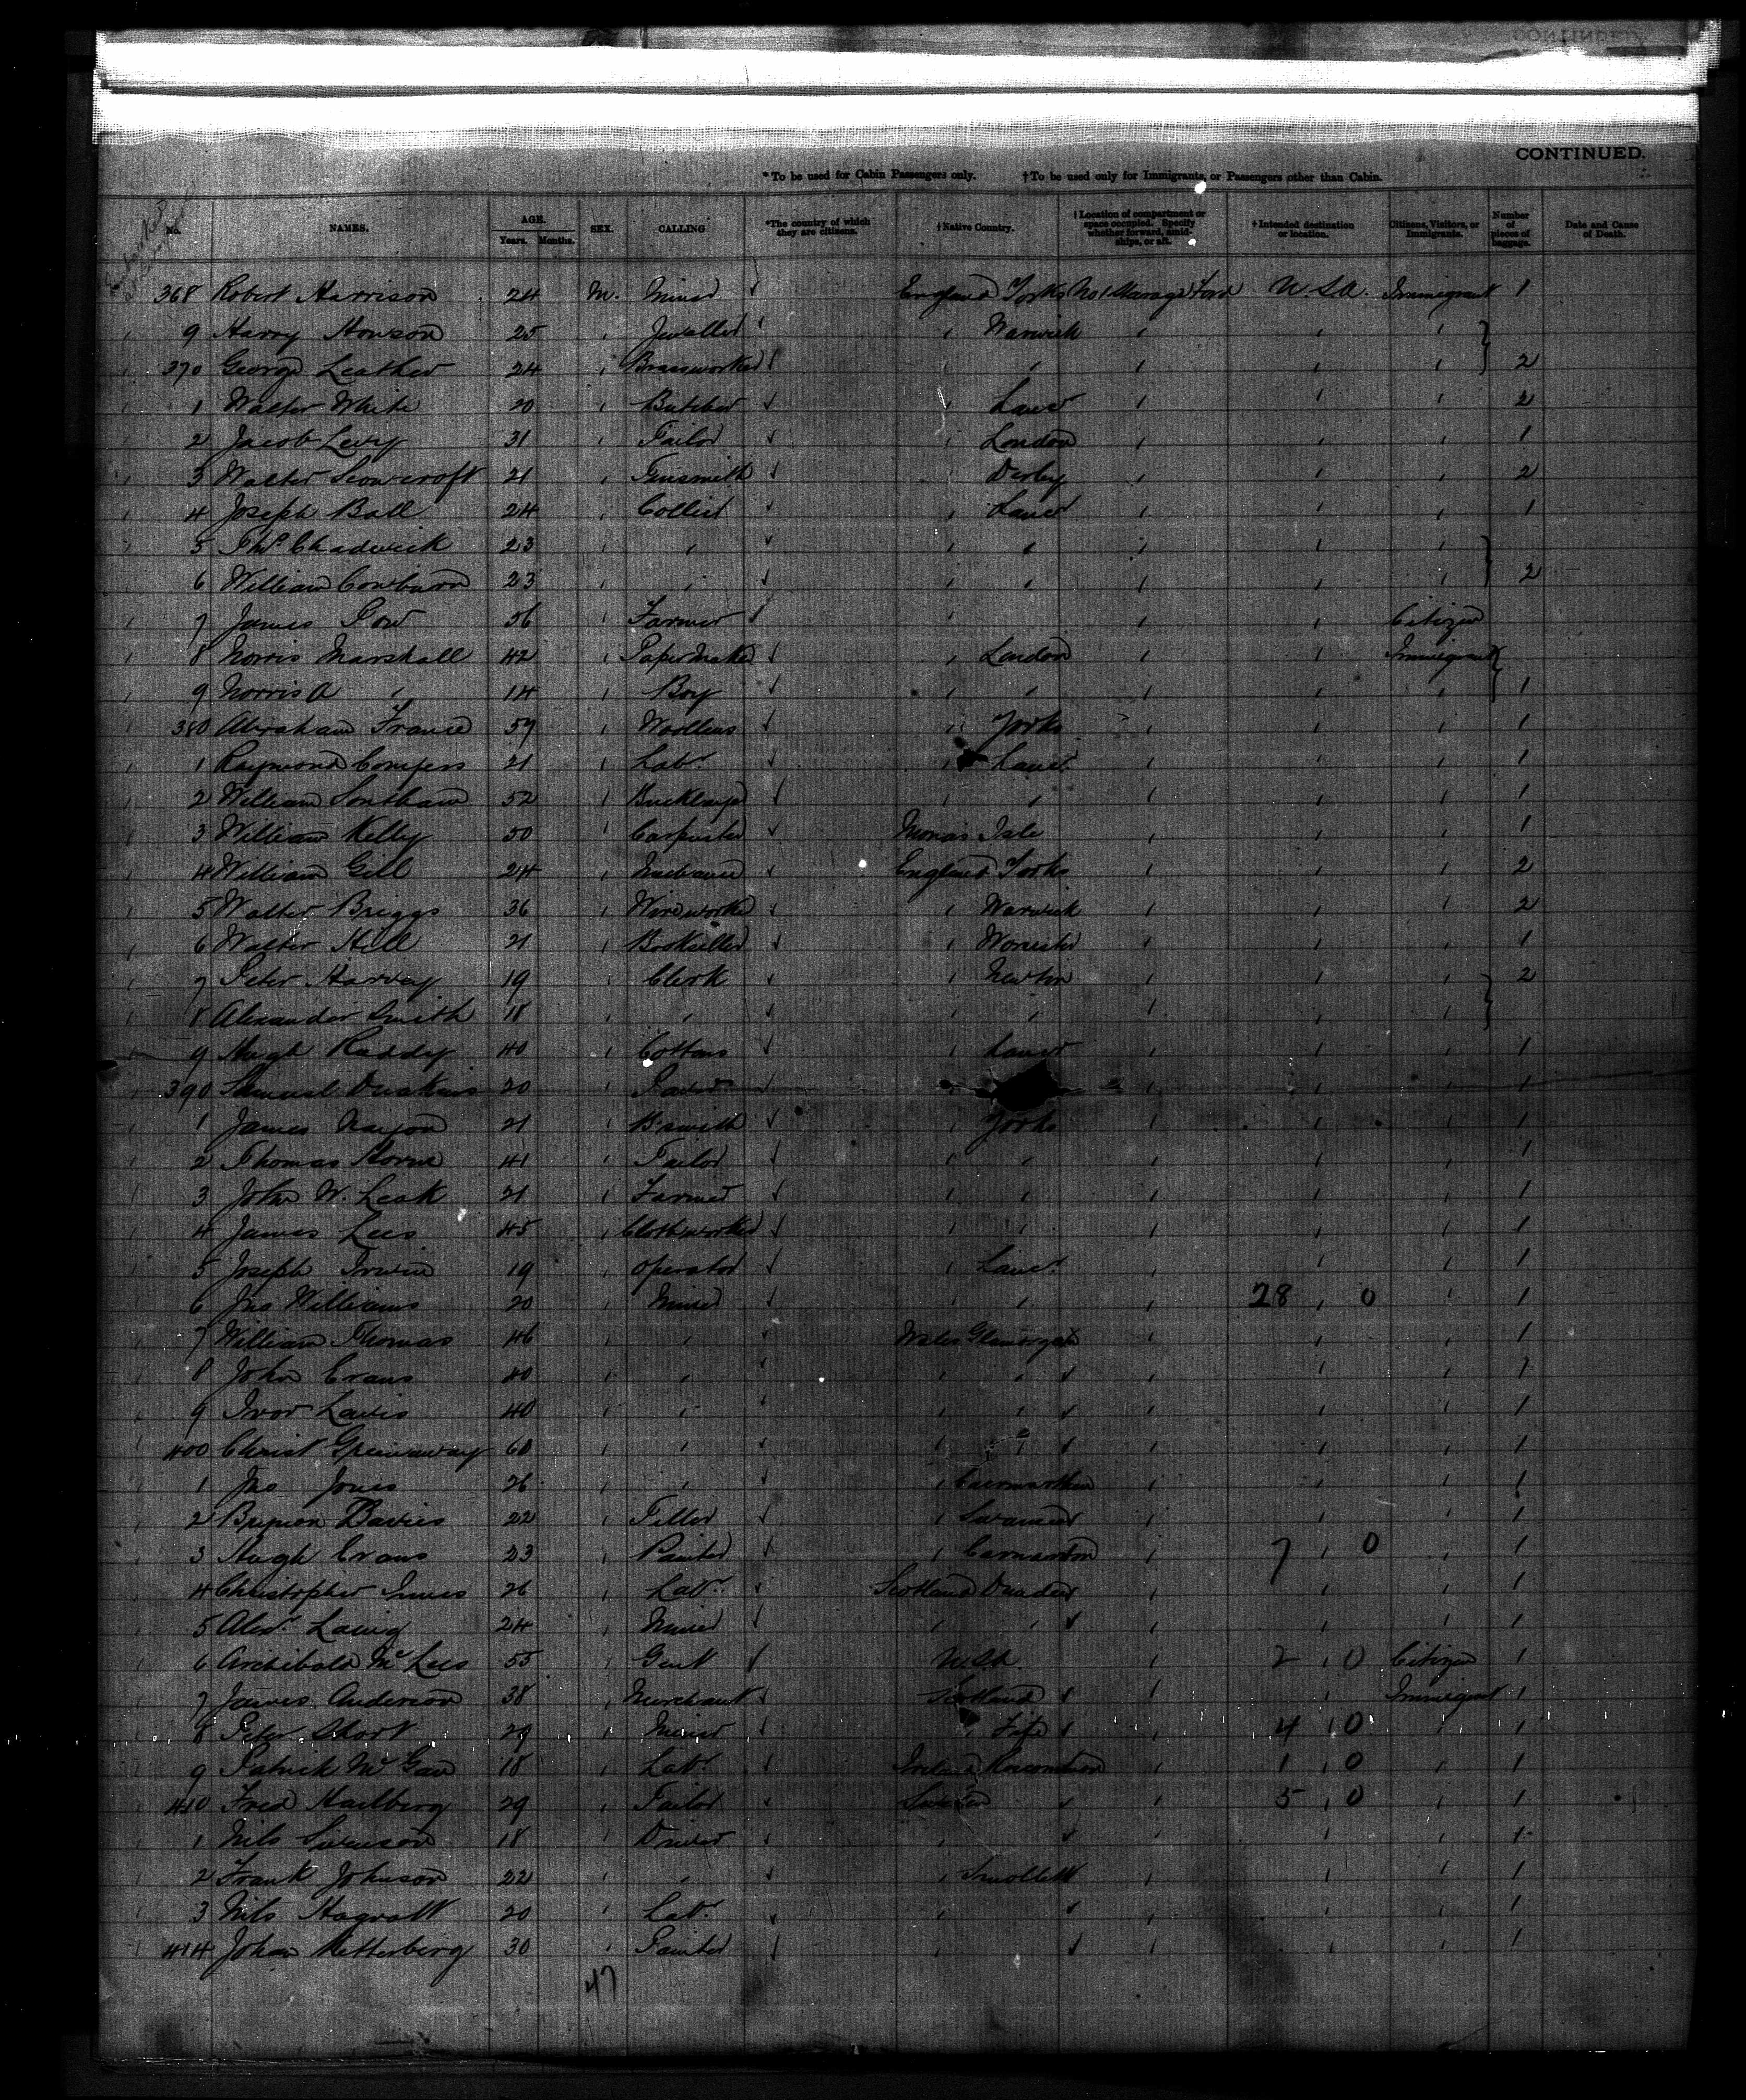 CONTINUED.
* To be used for Cabin Passengers only. † To be used only for Immigrants, or Passengers other than Cabin.
No. NAMES. AGE. Years. Months. SEX. CALLING *The country of which they are citizens. †Native Country. †Location of compartment or space occupied. Specify whether forward, amidships, or aft. †Intended destination or location. Citizens, Visitors, or Immigrants. Number of pieces of baggage. Date and Cause of Death.
368 Robert Harrison 24 M. Miner England Yorks No 1 U.S.A. Immigrant 1
9 Harry Howson 25 Jeweller Warwick
370 George Leather 24 Brassworker 2
1 Walter White 20 Butcher Lancr 2
2 Jacob Levy 31 Tailor London 1
3 Walter Scowcroft 21 Derby 2
4 Joseph Ball 24 Collier Lancr 1
5 Thos. Chadwick 23
6 William Cowburn 23 2
7 James 56 Farmer Citizen
8 Morris Marshall 42 Papermaker London Immigrant
9 Morris A 14 Boy 1
380 Abraham France 59 Woollens Yorks 1
1 Raymond Conyers 21 Labr. Lancr. 1
2 William Southam 52 Bricklayer 1
3 William Kelly 50 Carpenter Mona's Isle 1
4 William Gill 24 England Yorks 2
5 Walter Briggs 36 Wireworker Warwick 2
6 Walter Hill 21 Bookseller Worcester 1
7 Peter Harvey 19 Clerk Newton 2
8 Alexander Smith 18
9 Hugh Ruddy 40 Cottons Lancr 1
390 Samuel 20 1
1 James 21 B'smith Yorks 1
2 Thomas Horne 41 Tailor 1
3 John W. Leak 21 Farmer 1
4 James Lees 45 Clothworker 1
5 Joseph Irwin 19 Operator Lancr. 1
6 Jno Williams 20 Miner 28 0 1
7 William Thomas 46 Wales Glamorgan 1
8 John Evans 40 1
9 Ivor 40 1
400 Christ Greenaway 60 1
1 Jno Jones 26 Carmarthen 1
2 Davies 22 1
3 Hugh Evans 23 Painter Carnarvon 7 0 1
4 Christopher Innes 26 Labr. Scotland 1
5 Alexr. Laing 24 Miner 1
6 Archibald McLees 55 Gent U.S.A. 2 0 Citizen 1
7 James Anderson 38 Merchant Scotland Immigrant 1
8 Peter Short 29 Miner Fife 4 0 1
9 Patrick McGaw 18 Labr. Ireland Roscommon 1 0 1
410 Fred Hallberg 29 Tailor Sweden 5 0 1
1 Nils Swenson 18 Driver 1
2 Frank Johnson 22 1
3 Nils 20 Labr. 1
414 Johan 30 Painter 1
47